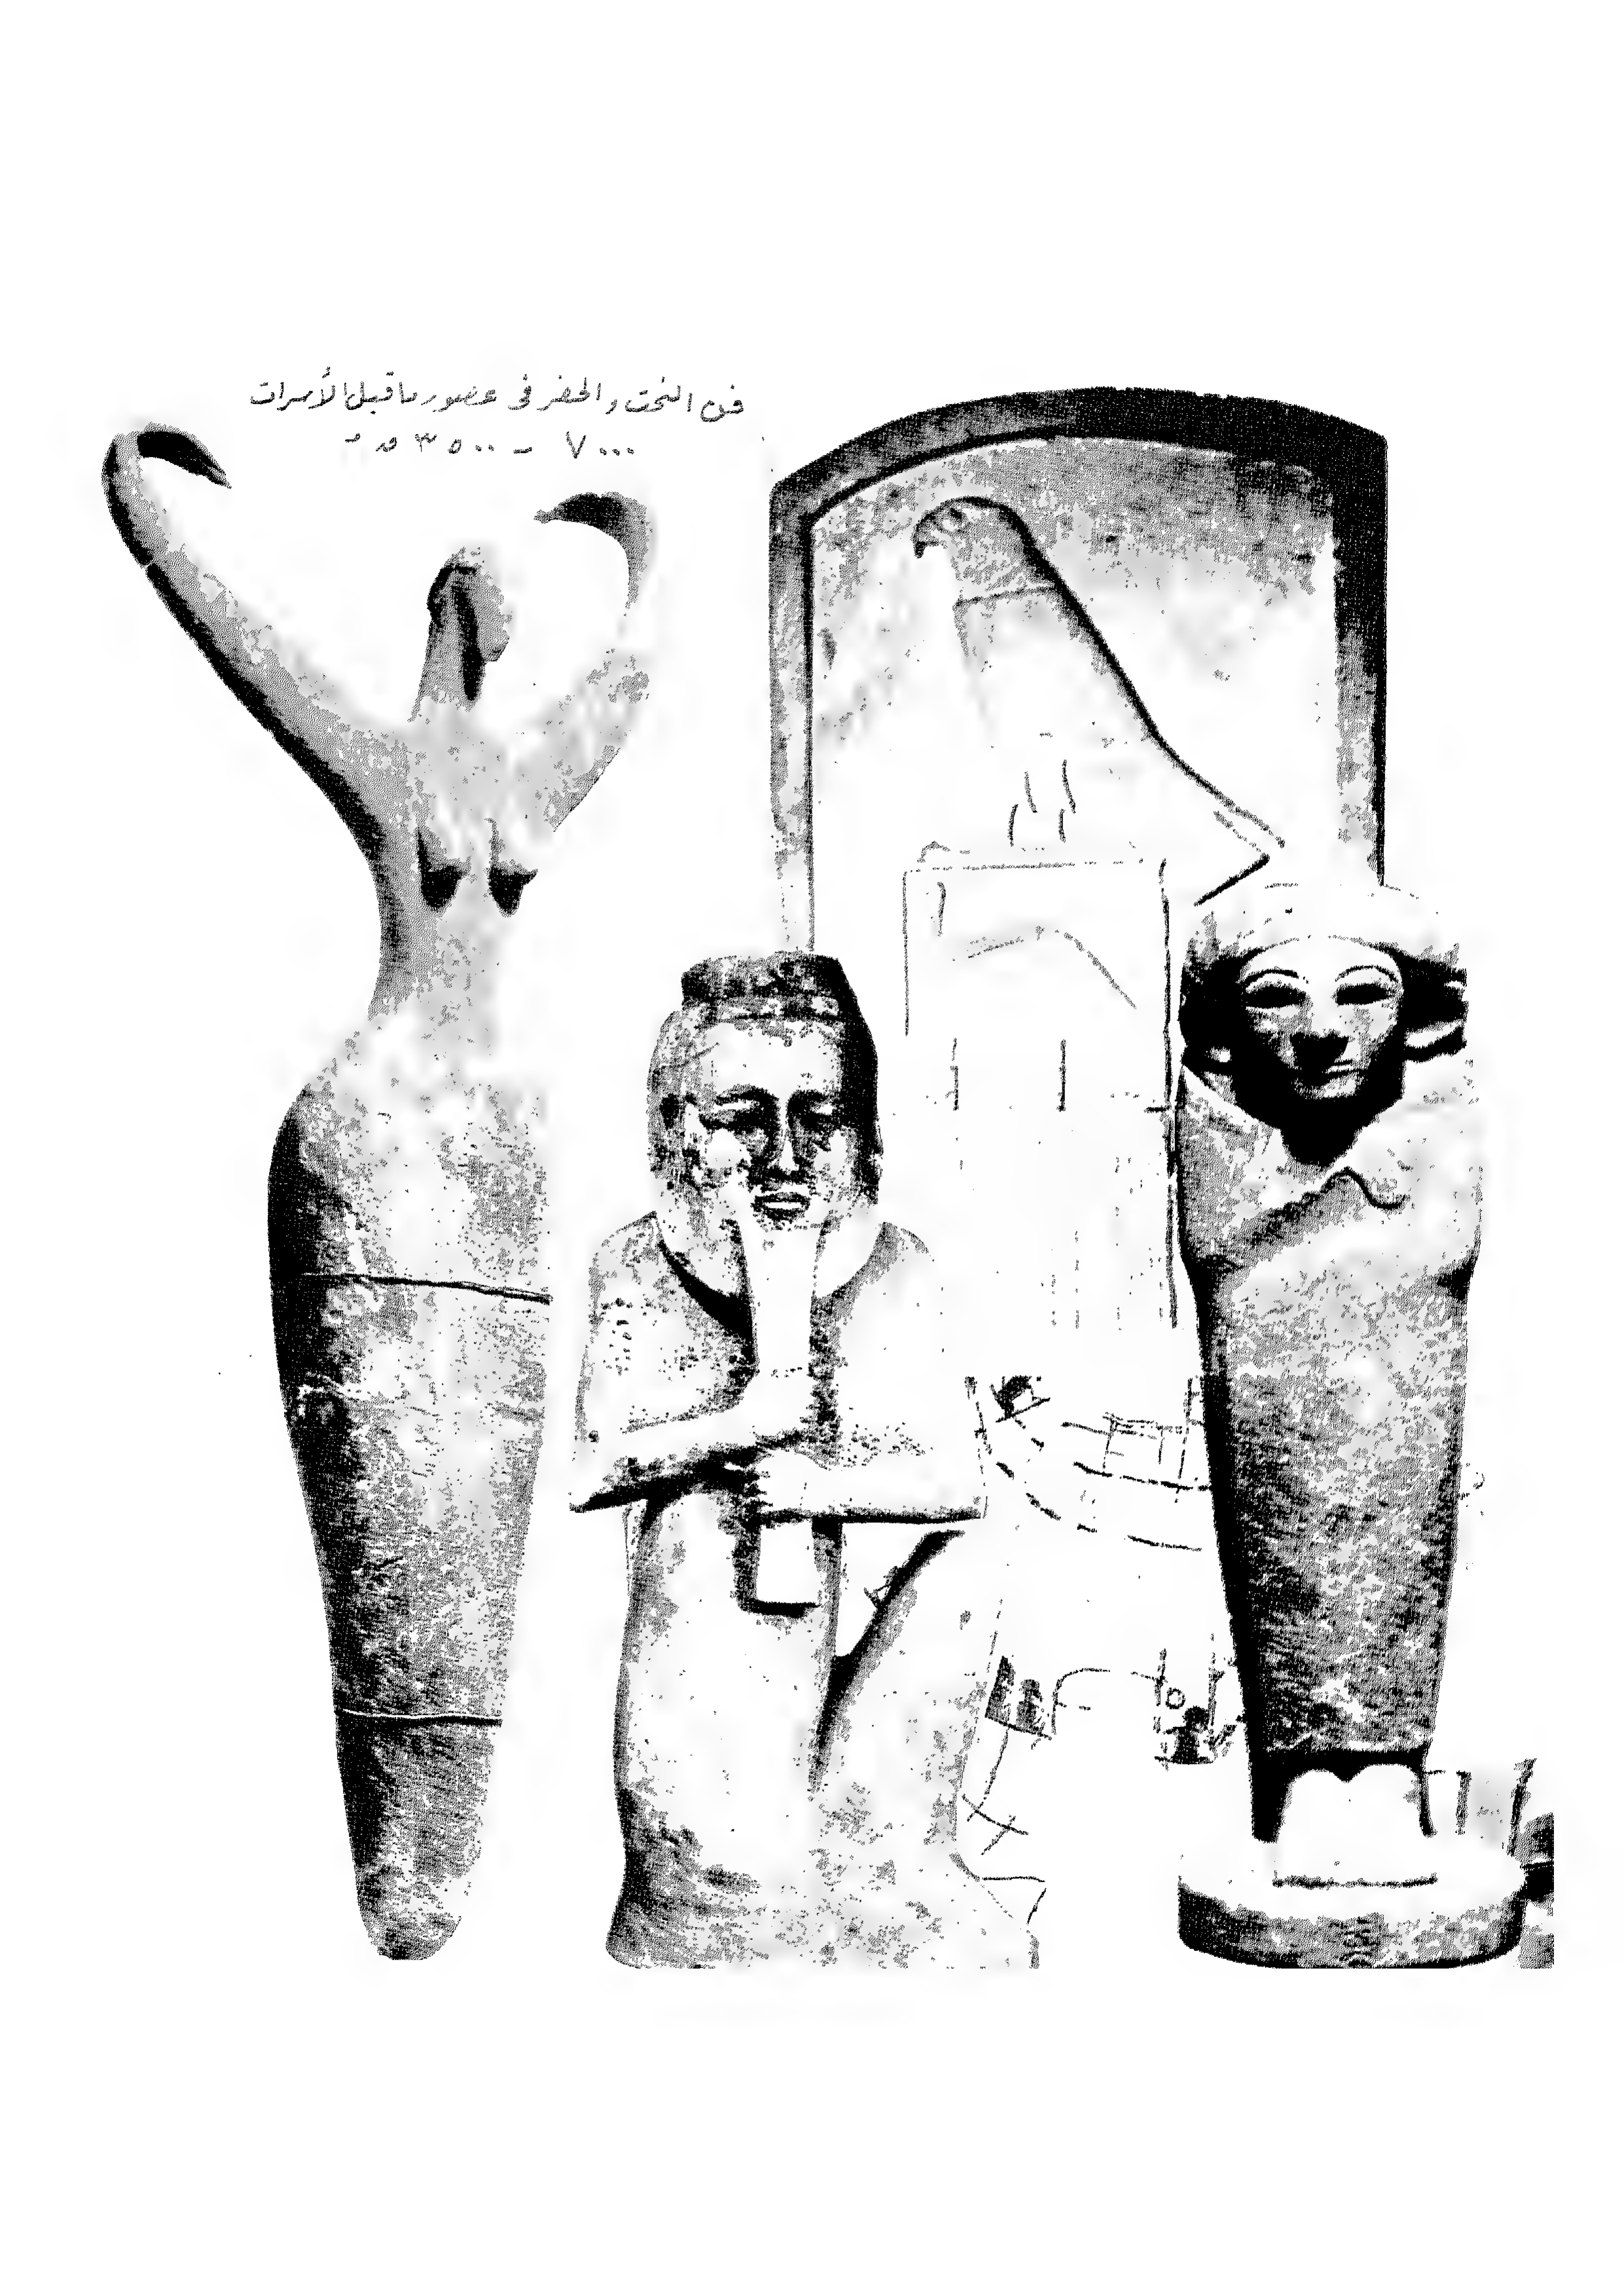 فن النحت والحفر فى عصور ما قبل الأسرات
٧٠٠٠ – ٣٥٠٠ ق م